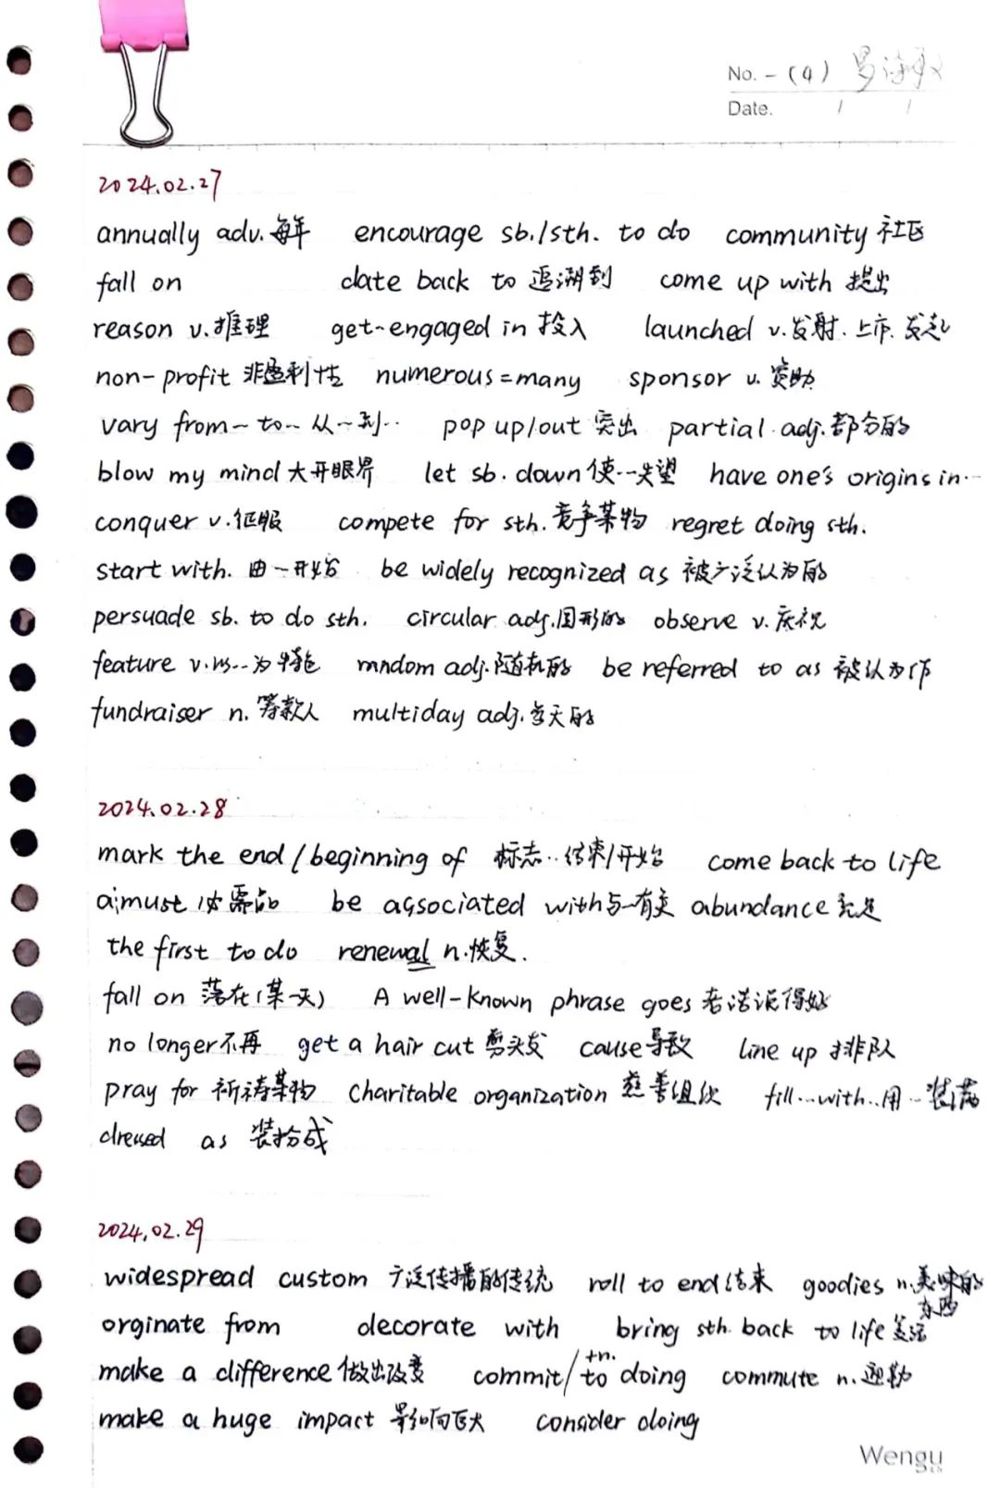 No. -(4)
Date. / /
2024.02.27
annually adv.每年 encourage sb./sth. to do community 社区
fall on date back to 追溯到 come up with 提出
reason v.推理 get~engaged in 投入 launched v.发射.上市.发起
non-profit 非盈利性 numerous=many sponsor v.资助
vary from~to~ 从~到·· pop up/out 突出 partial adj.部分的
blow my mind 大开眼界 let sb. down 使··失望 have one's origins in···
conquer v.征服 compete for sth.竞争某物 regret doing sth.
start with. 由一开始 be widely recognized as 被广泛认为的
persuade sb. to do sth. circular adj.圆形的 observe v.庆祝
feature v.以··为特色 random adj.随机的 be referred to as 被认为作
fundraiser n.筹款人 multiday adj.多天的
2024.02.28
mark the end/beginning of 标志··结束/开始 come back to life
a must 必需品 be associated with与一有关 abundance 充足
the first to do renewal n.恢复.
fall on 落在(某一天) A well-known phrase goes 老话说得好
no longer不再 get a hair cut 剪头发 cause导致 line up 排队
pray for 祈祷某物 charitable organization 慈善组织 fill···with··用··装满
dressed as 装扮成
2024.02.29
widespread custom 广泛传播的传统 roll to end结束 goodies n.美味的东西
orginate from decorate with bring sth. back to life 复活
make a difference 做出改变 commit/to +n. doing commute n.通勤
make a huge impact 影响巨大 consider doing
Wengu